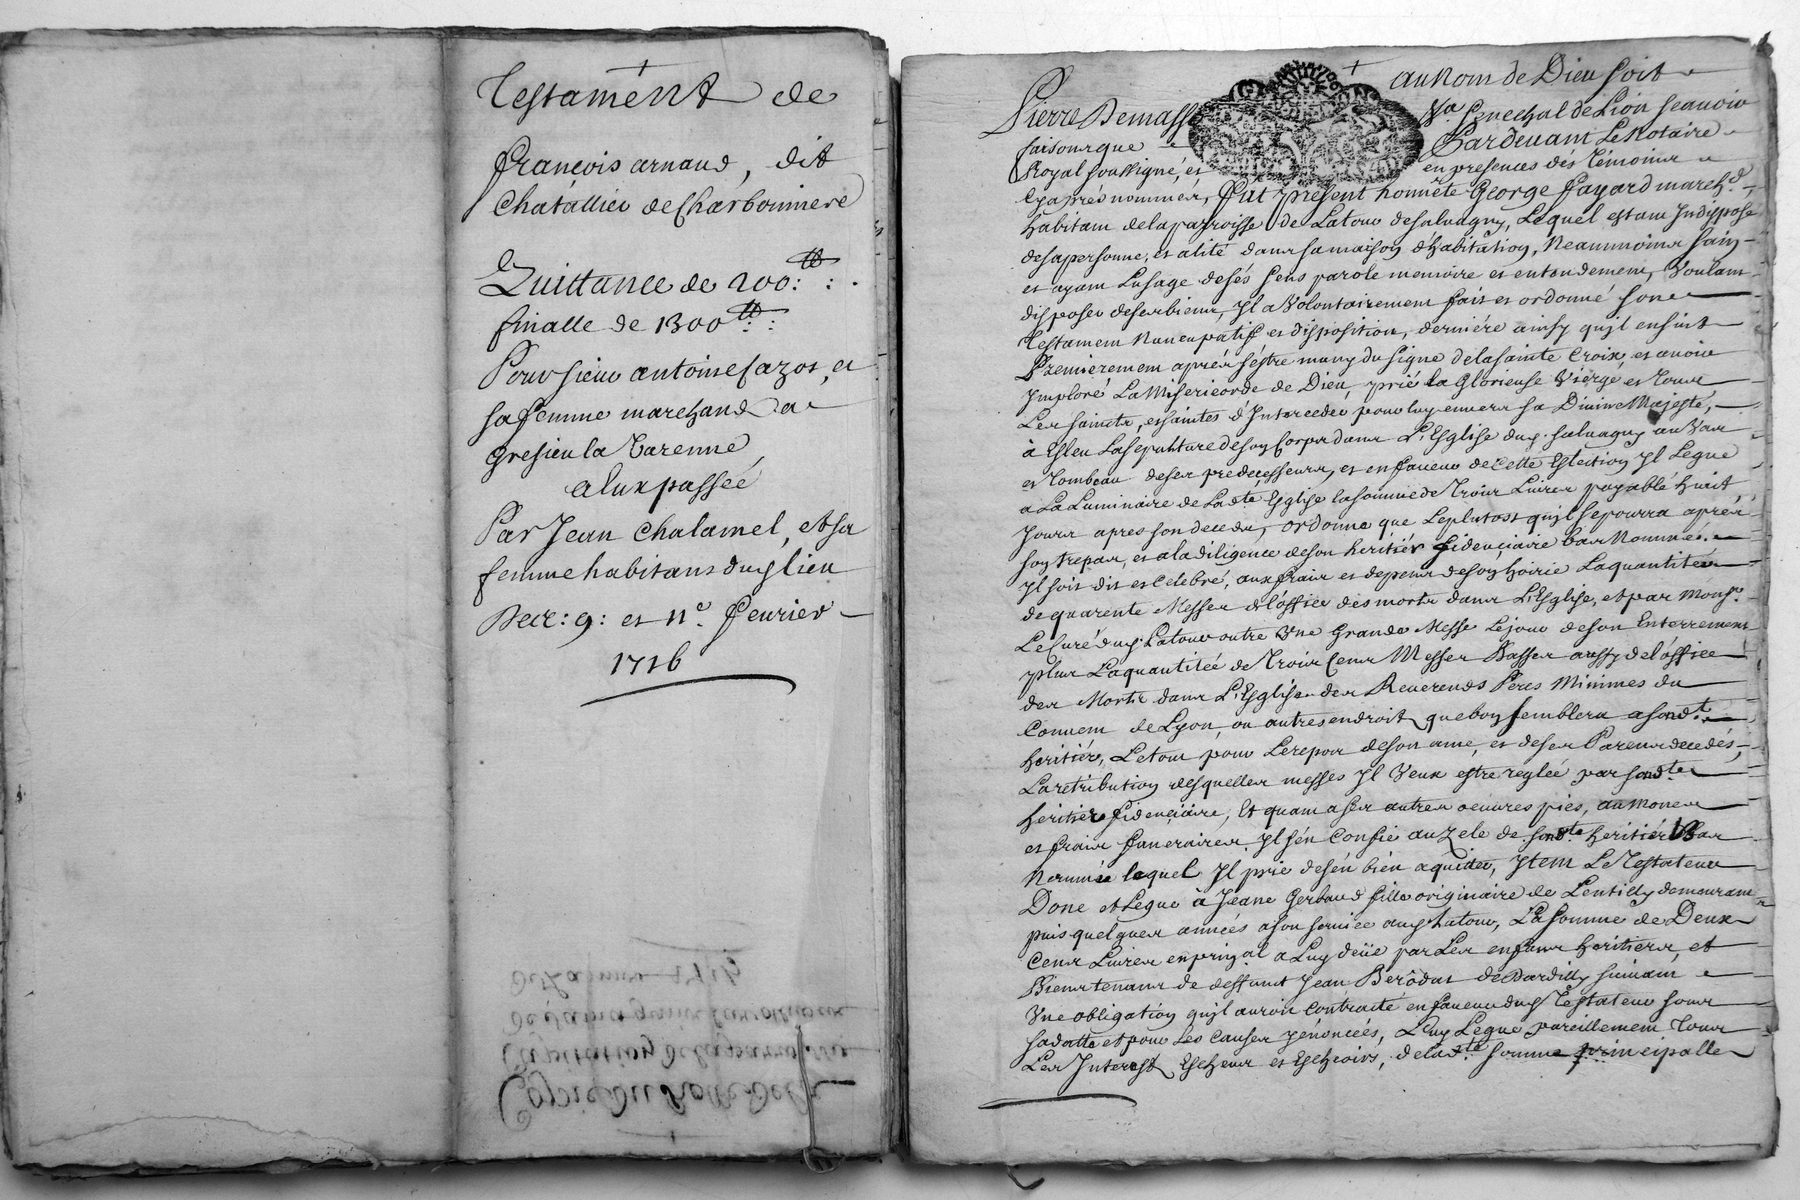 Testament de
françois arnaud, dit
Chatallier de Charbonniere
Quittance de 200:tt: .
finalle de 1300tt:
Pour sieur antoine fazot, et
sa femme marchand a
Gresieu la Varenne
a Eux passée
Par Jean Chalamel, et sa
femme habitans dud lieu
Dece: 9: et 11e. feurier
1716
Copie du Rolle de la
Capitation de la parroisse
de
de Lannee 1715
au Nom de Dieu soit
Pierre Demasse Senechal de Lion scauoir
faisons que Pardeuant Le Notaire
Royal soussigné, et en presences dés témoins
Cyaprés nommés, fût present honnête George Fayard march.d
habitant de la parroisse de Latour de saluagny, Lequel estant Indisposé
de sa personne, et alité dans sa maison d'habitation, Neammoins sain
et ayant Lusage de sés sens parole memoire et entendement, Voulant
disposer de ses biens, Il a Volontairement fait et ordonné son
Testament Nuncupatif et disposition, derniére ainsy quil ensuit
Premierement aprés s'éstre muny du signe de la sainte Croix, et auoir
Imploré La Misericorde de Dieu, prié la Glorieuse Viergé et tous
Les saincts, et saintes d'Interceder pour luy enuers sa Diuine Majesté,
à Esleu La sepulture de son Corps dans L'Esglise dud. saluagny au Vas
et Tombeau de ses predecesseurs, et en faueur de cette Eslection Il Legue
a La Luminaire de Lad.te Esglise la somme de Trois Liures payable huit
Jours apres son decedz, ordonne que Le plutost quil se pourra aprés
son trepas, et a la diligence de son heritiér fidenciaire bas Nommé.
Il soit dit et celebré, aux frais et depens de son hoirie La quantitée
de quarente Messes de l'office dés morts dans L'Esglise, et par Mons.r
Le Curé dud. Latour outre Vne Grande Messe Le jour de son Enterrement
plus La quantitée de Trois Cens Messes Basses aussy de l'office
des Morts dans L'Esglise des Reuerends Péres Minimes du
Conuent de Lyon, ou autres endroits que bon semblera a sond.t
heritiér, Le tout pour Le repos de son ame, et de ses Parens decedés,
La rétribution desquelles messes Il Veux estre reglée par sond.t
heritiér fidenciaire, Et quant a ses autres oeuures piés, aumones
et frais funeraires Il s'én Confie au Zele de sond.t heritiér bas
Nommé lequel Il prie de s'én bién aquiter, Item Le Testateur
Done et Legue à Jeane Gerbaud fille originaire de Lentilly demeurant
puis quelques années a son seruice aud. Latour, La somme de Deux
Cens Liures en prin.al a Luy deüe par Les enfans heritiers, et
Bientenans de deffunct Jean Berôdat de Dardilly suiuant
Vne obligation quil auroit contracté en faueur dud. Testateur sous
sa datte et pour Les causes y énoncées, Luy Legue pareillement tous
Les Interests Escheus et Escheoirs, de lad.te somme principalle